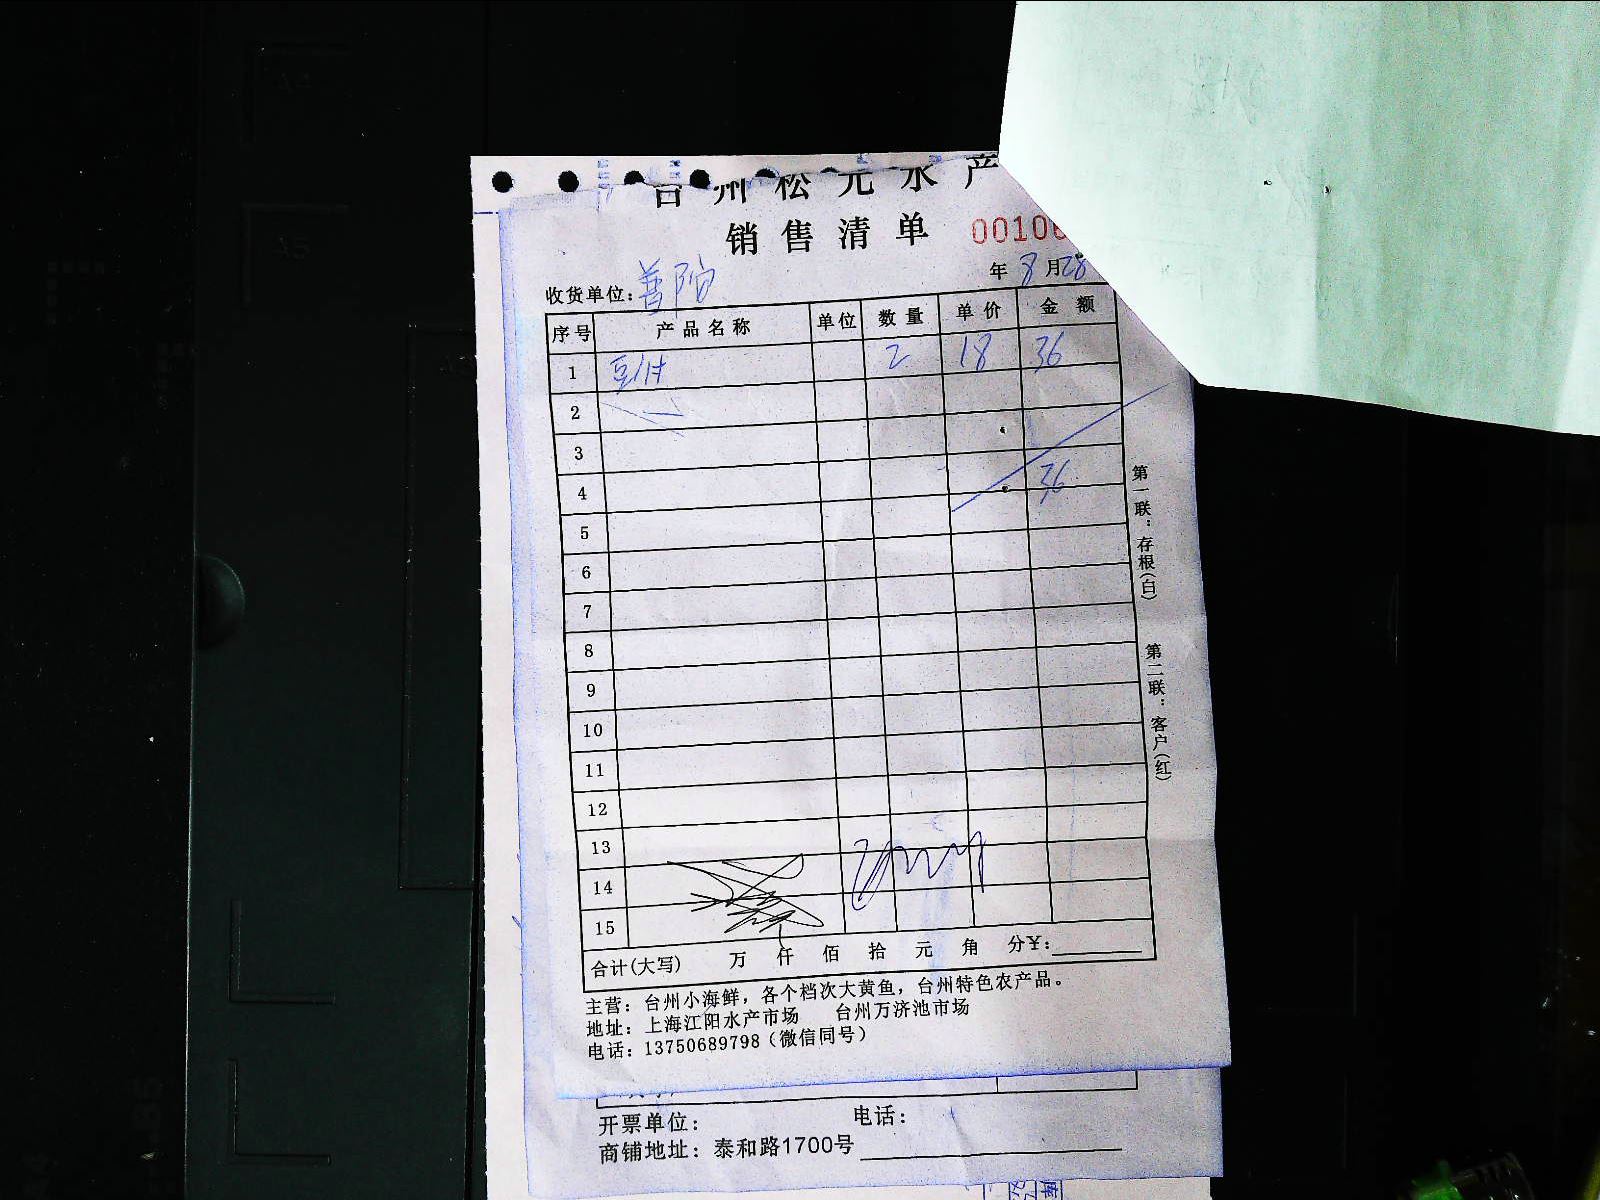 台州松元水产
销售清单 00106
收货单位：普陀 年8月28
序号 产品名称 单位 数量 单价 金额
1 2 18 36
2
3
4 36
5
6
7
8
9
10
11
12
13
14
15
合计(大写) 万 仟 佰 拾 元 角 分¥：
主营：台州小海鲜，各个档次大黄鱼，台州特色农产品。
地址：上海江阳水产市场 台州万济池市场
电话：13750689798（微信同号）
第一联：存根(白) 第二联：客户(红)
开票单位： 电话：
商铺地址：泰和路1700号